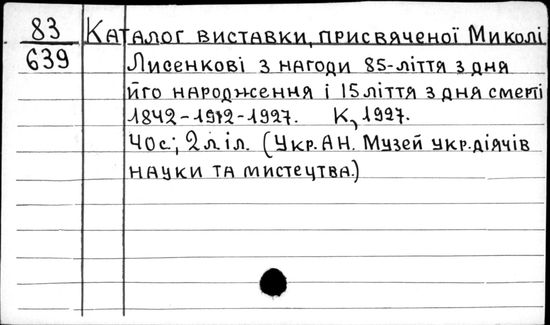 83 Каталог виставки, присвяченої Миколі
639 Лисенкові з нагоди 85-ліття з дня
його народження і 15 ліття з дня смерті
1842-1912-1927. К, 1927.
40с; 2л іл. (Укр.АН. Музей укр.діячів
науки та мистецтва.)